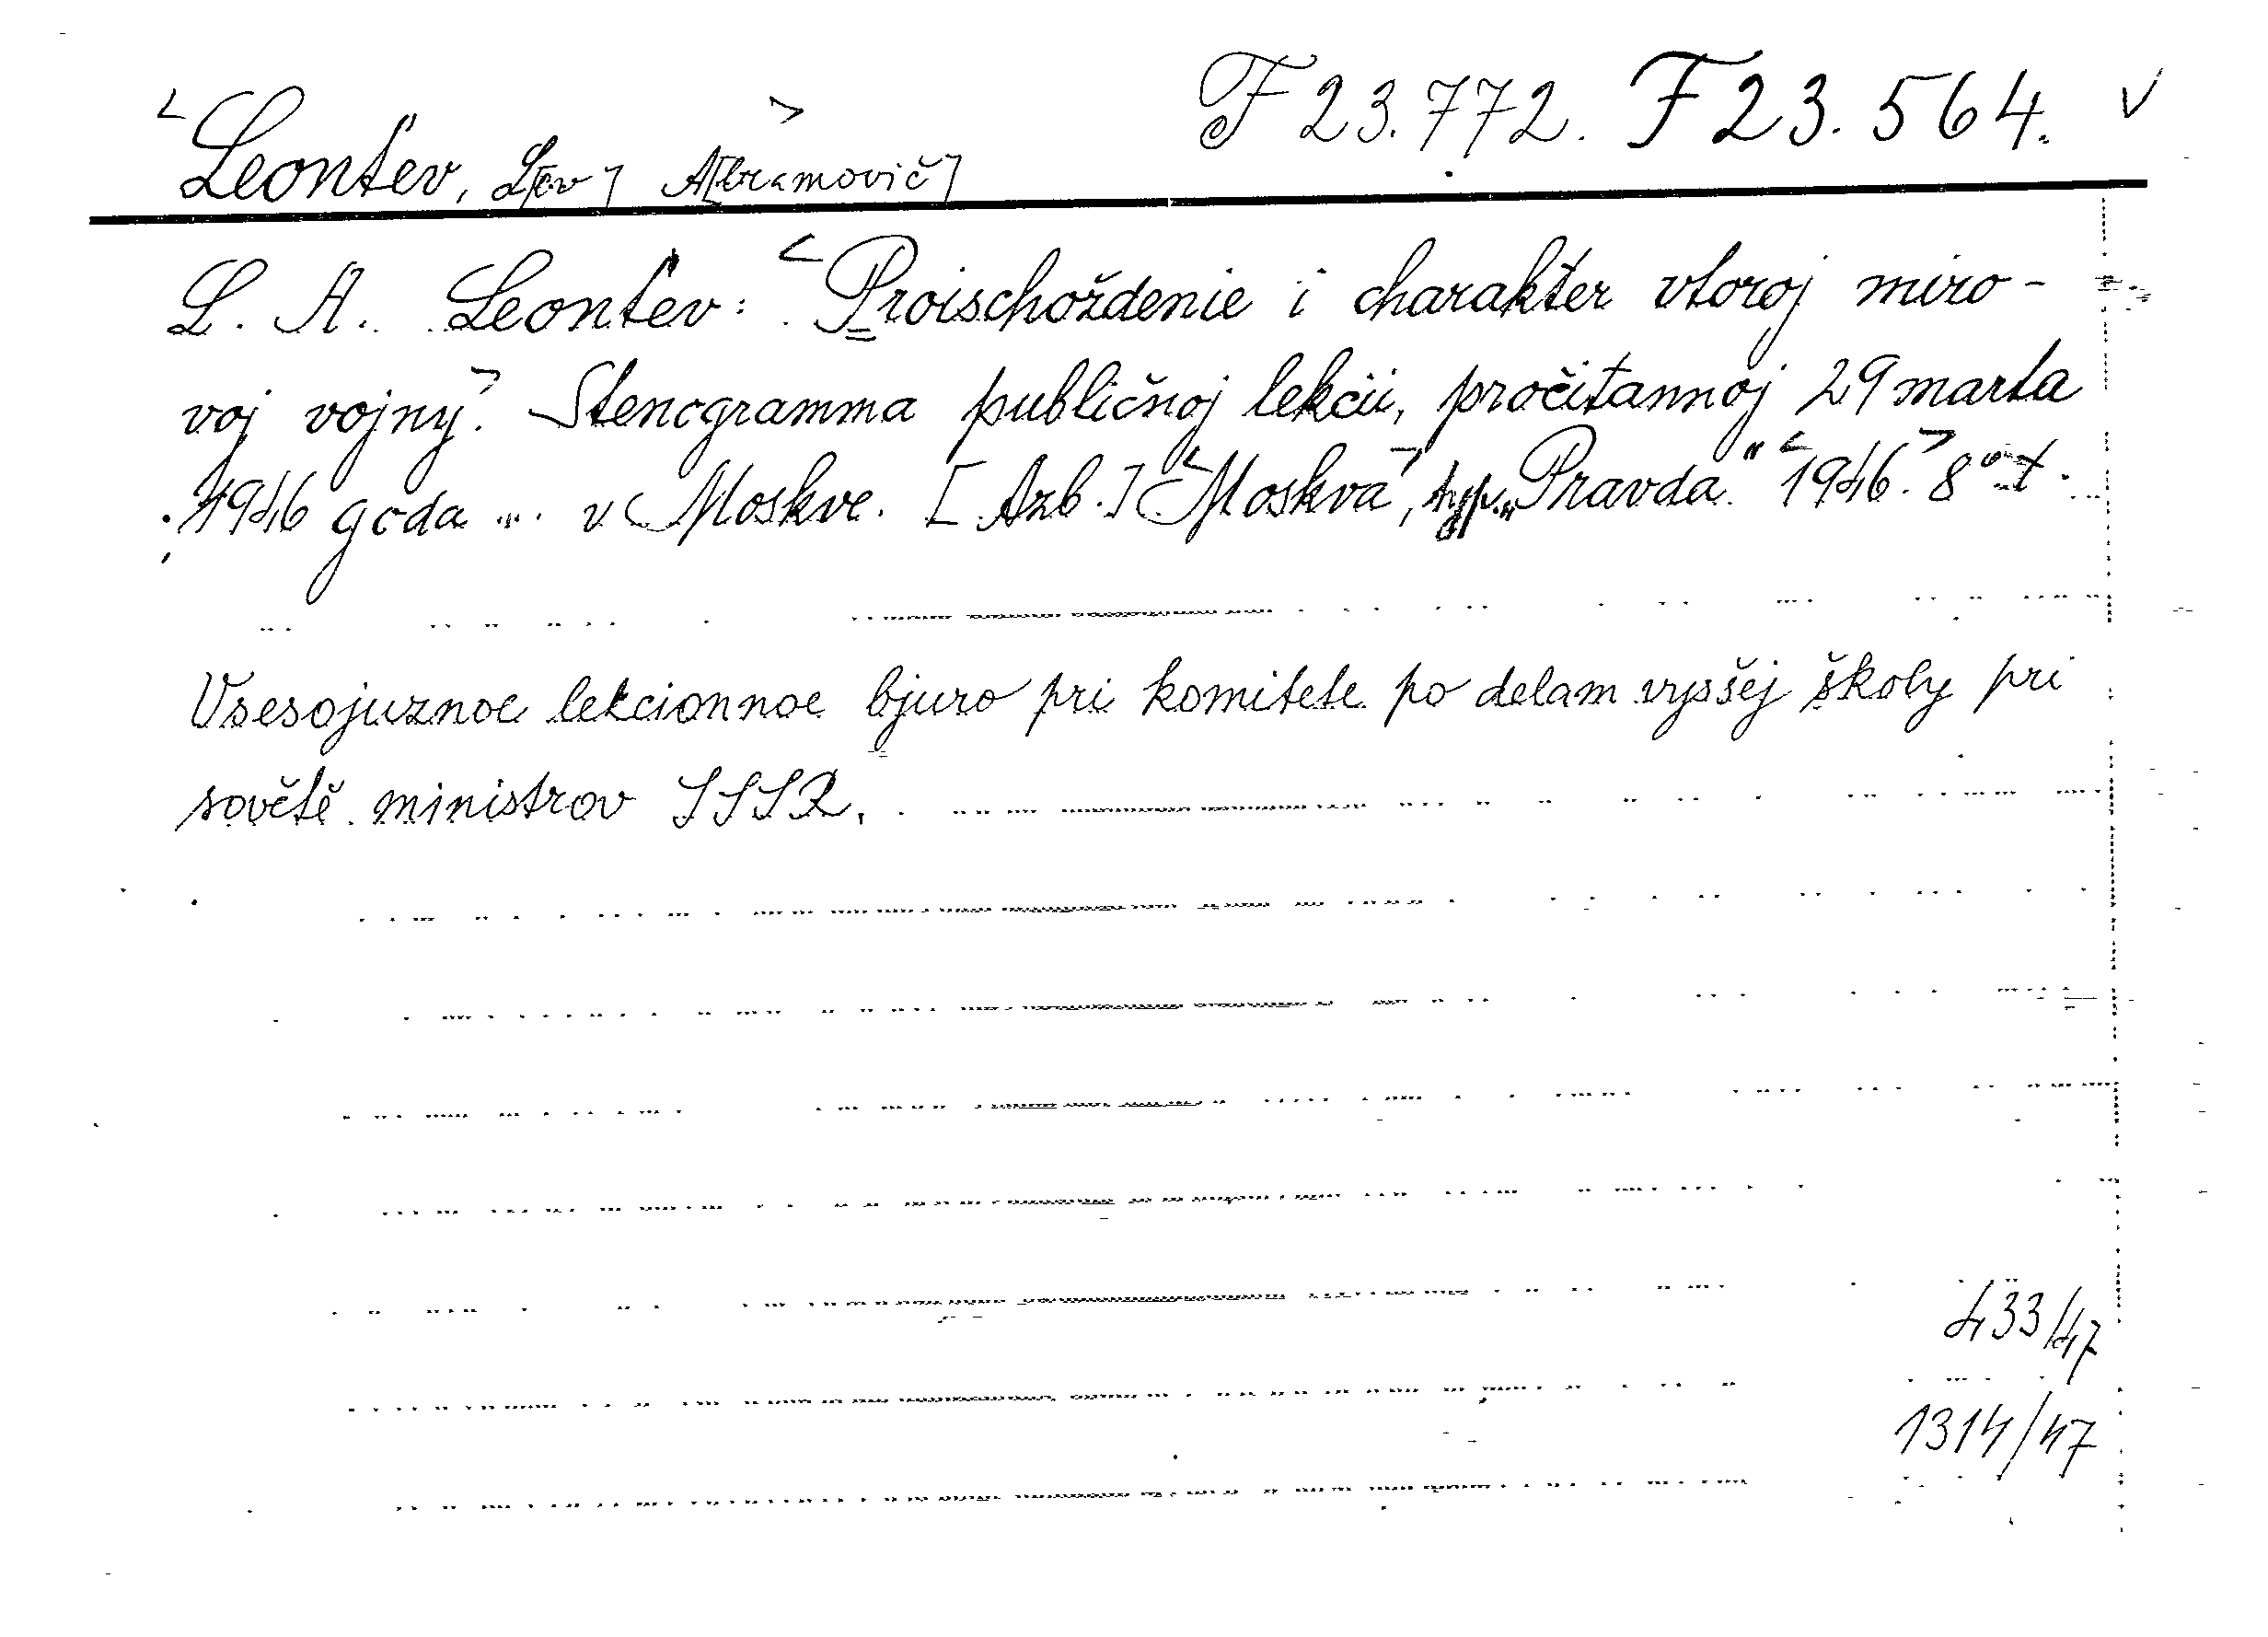 Leont'ev, L[ev] A[bramovič] F 23.772. F 23.564. √
L. A. Leont'ev: Proischoždenie i charakter vtoroj miro-
voj vojny. Stenogramma publičnoj lekcii, pročitannoj 29 marta
1946 goda ... v Moskve. [Azb.] Moskva, typ. „Pravda" 1946. 8°
Vsesojuznoe lekcionnoe bjuro pri komitete po delam vysšej školy pri
sovětě ministrov SSSR.
433/47
1314/47